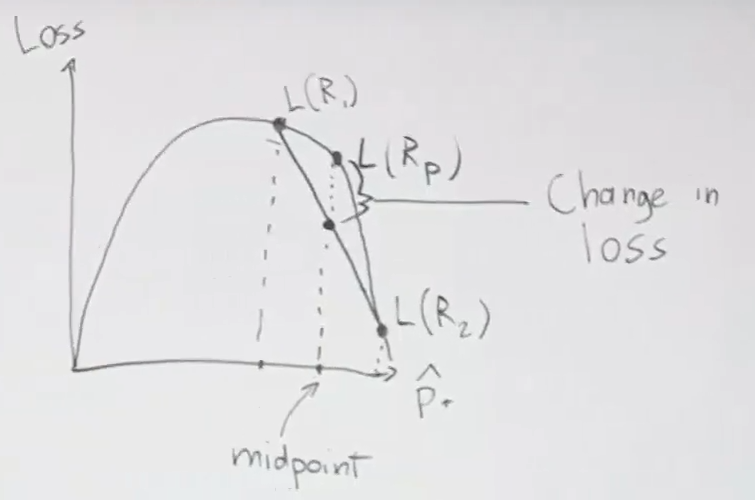 Loss
L(R₁)
L(Rₚ)
Change in
loss
L(R₂)
p̂₊
midpoint